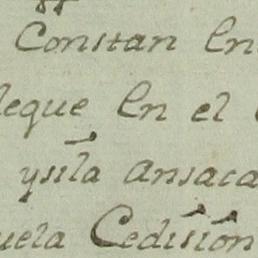 Constan En
leque En el
ysila ansaca
uela Cedisión